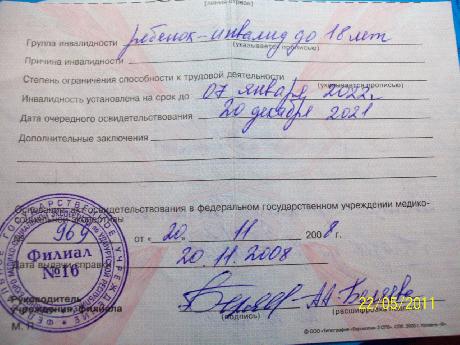 (линия отреза)
Группа инвалидности ребенок-инвалид до 18 лет
(указывается прописью)
Причина инвалидности
Степень ограничения способности к трудовой деятельности
(указывается прописью)
Инвалидность установлена на срок до 07 января 2022г.
Дата очередного освидетельствования 20 декабря 2021
Дополнительные заключения
Основание: акт освидетельствования в федеральном государственном учреждении медико-
социальной экспертизы
№ 969 от «20» 11 2008 г.
Дата выдачи справки 20.11.2008
Филиал
№16
Руководитель
учреждения, филиала
А.А. Беляева
(подпись)
М. П.
22/05/2011